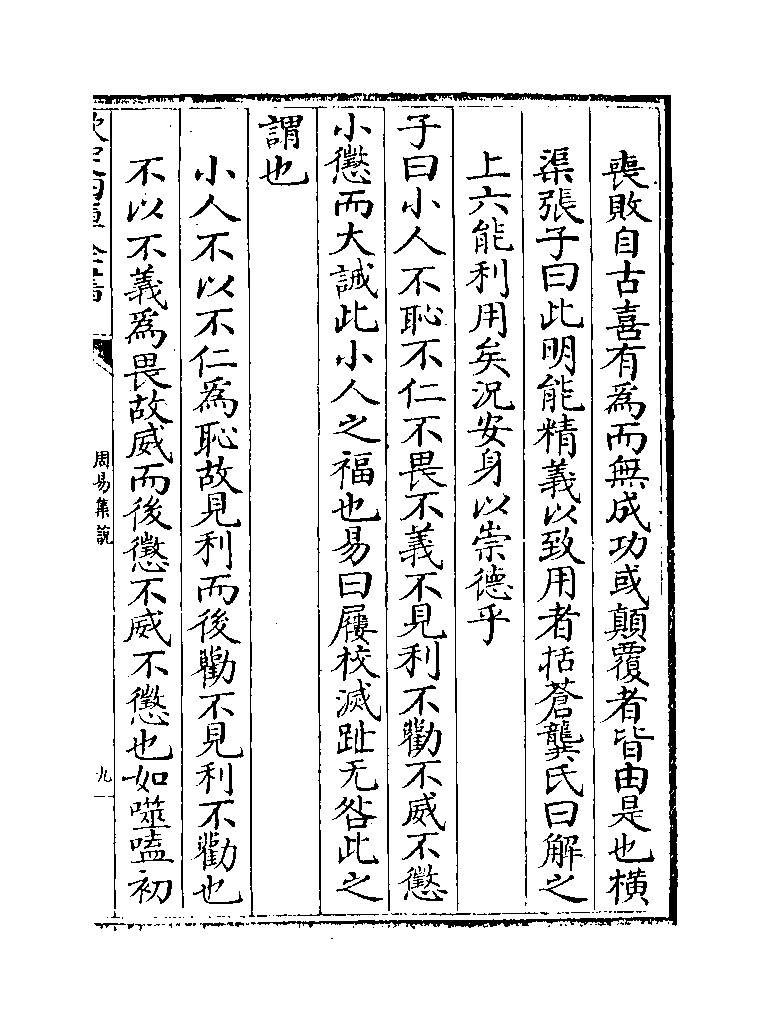 喪敗自古喜有為而無成功或顛覆者皆由是也橫
渠張子曰此明能精義以致用者括蒼龔氏曰解之
上六能利用矣況安身以崇德乎
子曰小人不恥不仁不畏不義不見利不勸不威不懲
小懲而大誡此小人之福也易曰屨校滅趾无咎此之
謂也
小人不以不仁為恥故見利而後勸不見利不勸也
不以不義為畏故威而後懲不威不懲也如噬嗑初
周易集說
九